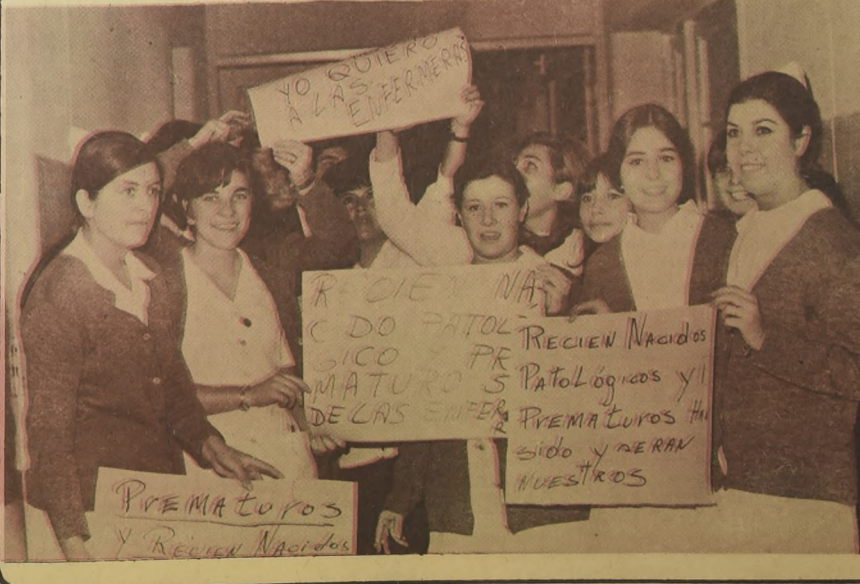 YO QUIERO
A LAS
ENFERMERAS
RECIEN NA-
CIDO PATOL-
GICO PR
MATUROS
DE LAS ENFER
R
RECIEN NACIDOS
PATOLÓGICOS Y
PREMATUROS HA
SIDO Y SERAN
NUESTROS
PREMATUROS
Y RECIEN NACIDOS